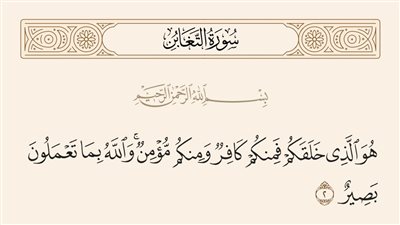 سُورَةُ التَّغَابُنِ
بِسْمِ اللَّهِ الرَّحْمَٰنِ الرَّحِيمِ
هُوَ ٱلَّذِى خَلَقَكُمْ فَمِنكُمْ كَافِرٌ وَمِنكُم مُّؤْمِنٌ ۚ وَٱللَّهُ بِمَا تَعْمَلُونَ
بَصِيرٌ ٢